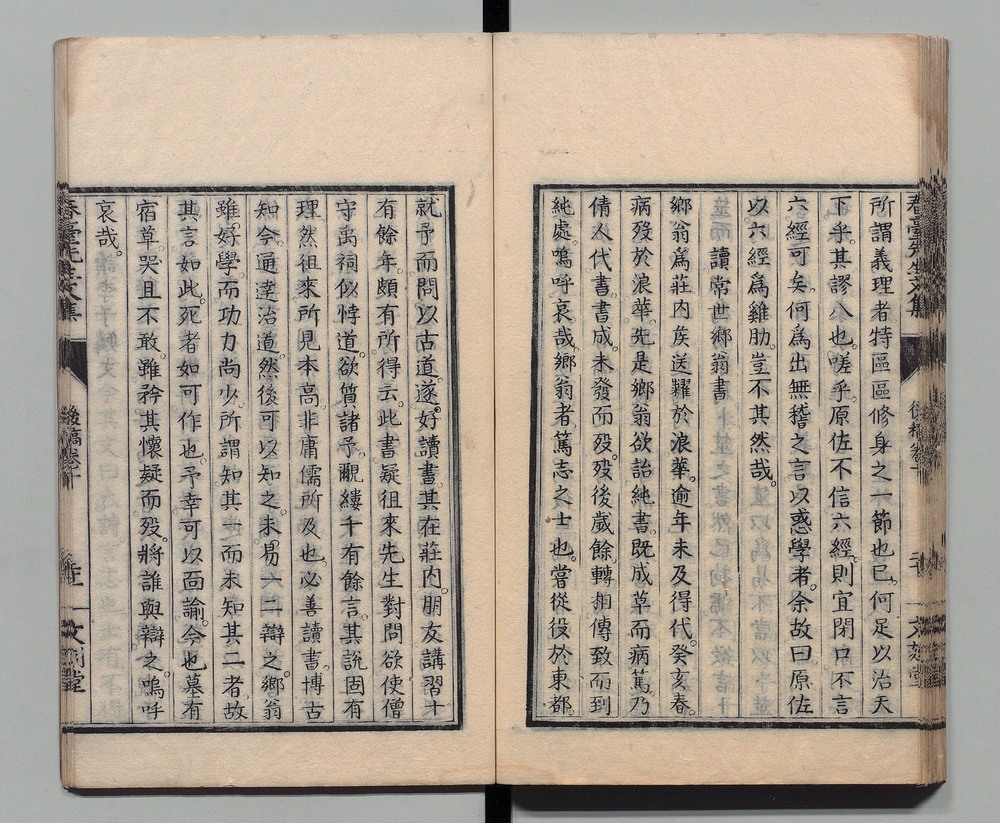 春臺先生文集 後稿卷十
所謂義理者特區區修身之一節也已。何足以治天
下乎。其謬八也。嗟乎。原佐不信六經。則宜閉口不言
六經可矣。何爲出無稽之言以惑學者。余故曰。原佐
以六經爲雞肋。豈不其然哉。
讀常世鄉翁書
鄉翁爲莊內矦送糶於浪華。逾年未及得代。癸亥春。
病歿於浪華。先是鄉翁欲詒純書。既成草而病篤。乃
倩人代書。書成。未發而歿。歿後歲餘。轉相傳致而到
純處。嗚呼哀哉。鄉翁者。篤志之士也。嘗從役於東都。
就予而問以古道。遂好讀書。其在莊內。朋友講習十
有餘年。頗有所得云。此書疑徂來先生對問欲使僧
守禹祠似悖道。欲質諸予。覼縷千有餘言。其說固有
理。然徂來所見本高。非庸儒所及也。必善讀書。博古
知今。通達治道。然後可以知之。未易一二辯之。鄉翁
雖好學。而功力尚少。所謂知其一而未知其二者。故
其言如此。死者如可作也。予幸可以面諭。今也墓有
宿草。哭且不敢。雖矜其懷疑而歿。將誰與辯之。嗚呼
哀哉。
春臺先生文集 後稿卷十